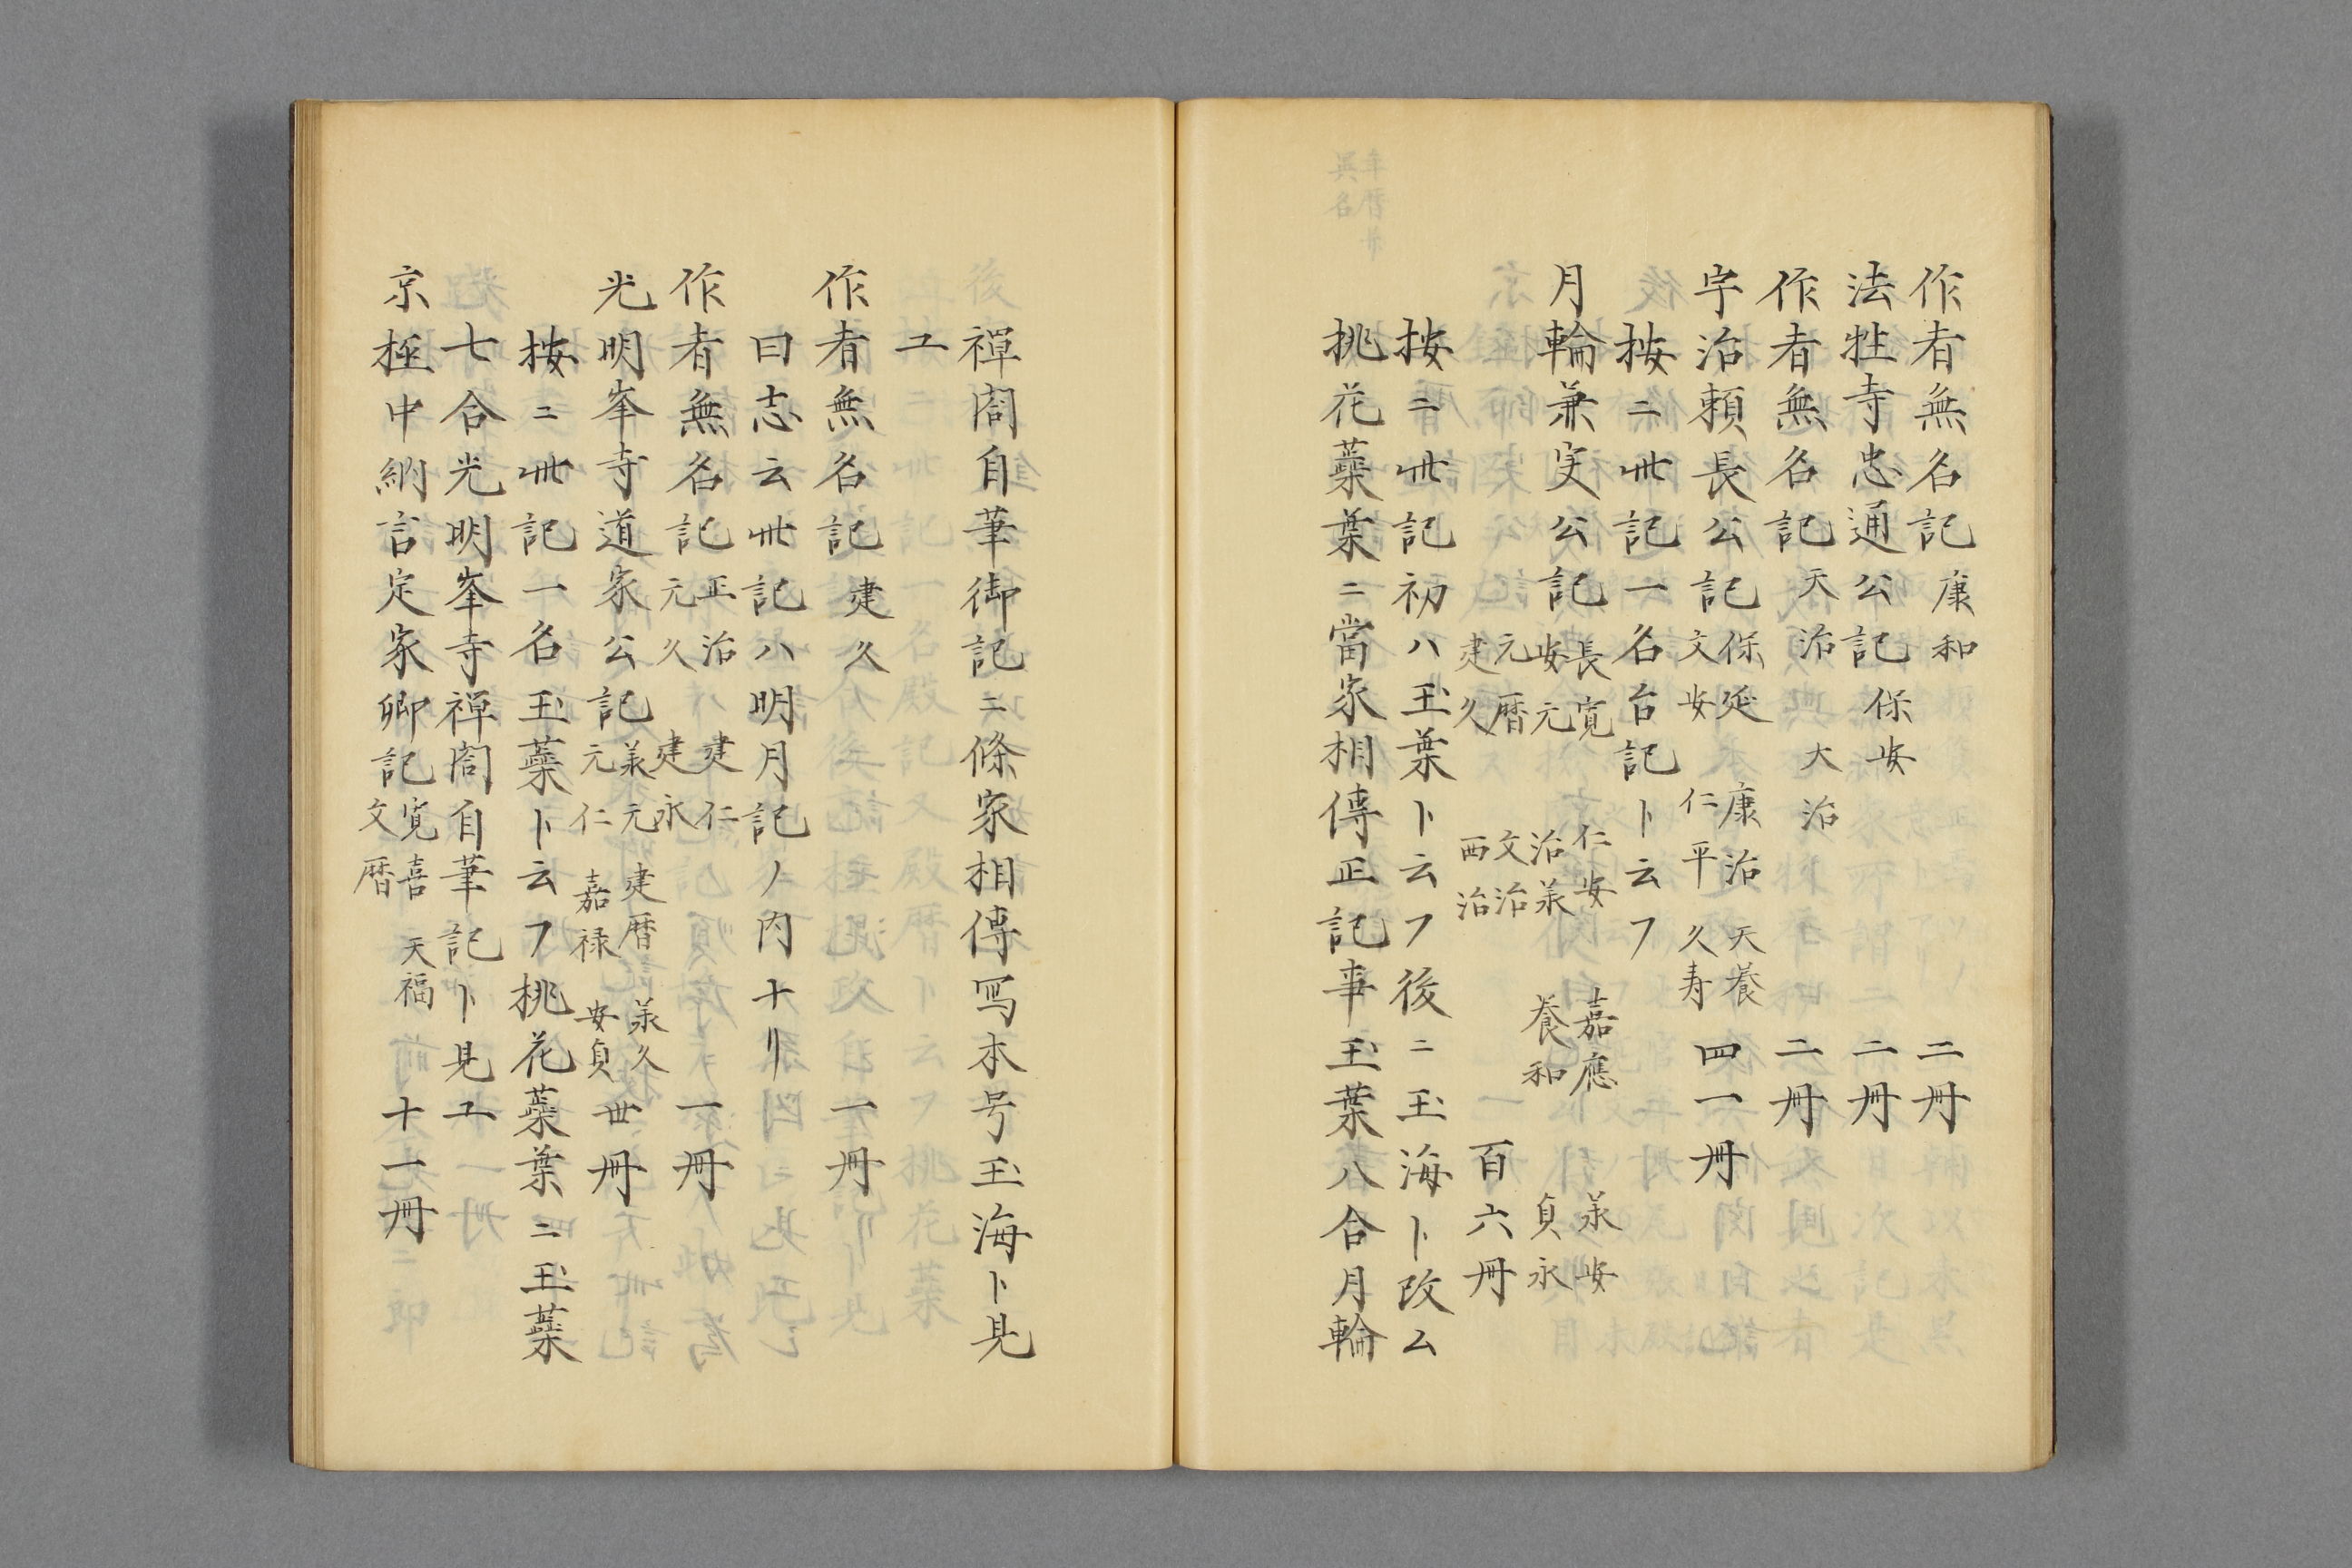 作者無名記 康和 二冊
法性寺忠通公記 保安 二冊
作者無名記 天治 大治 二冊
宇治頼長公記 保延 康治 天養 文安 仁平 久寿 四一冊
按ニ此記一名台記ト云フ
月輪兼实公記 長寛 仁安 嘉應 兼安 安元 治兼 養和 貞永
元暦 文治 建久 西治 百六冊
按ニ此記初ハ玉葉ト云フ後ニ玉海ト改ム
桃花蘂葉ニ當家相傳正記事玉葉八合月輪
禪閤自筆御記二條家相傳写本号玉海ト見
ユ
作者無名記 建久 一冊
曰志云此記ハ明月記ノ内ナリ
作者無名記 正治 建仁 元久 建永 一冊
光明峯寺道家公記 兼元 建暦 兼久 元仁 嘉禄 安貞 丗冊
按ニ此記一名玉蘂ト云フ桃花蘂葉ニ玉蘂
七合光明峯寺禪閤自筆記ト見ユ
京極中納言定家卿記 寛喜 天福 文暦 十一冊